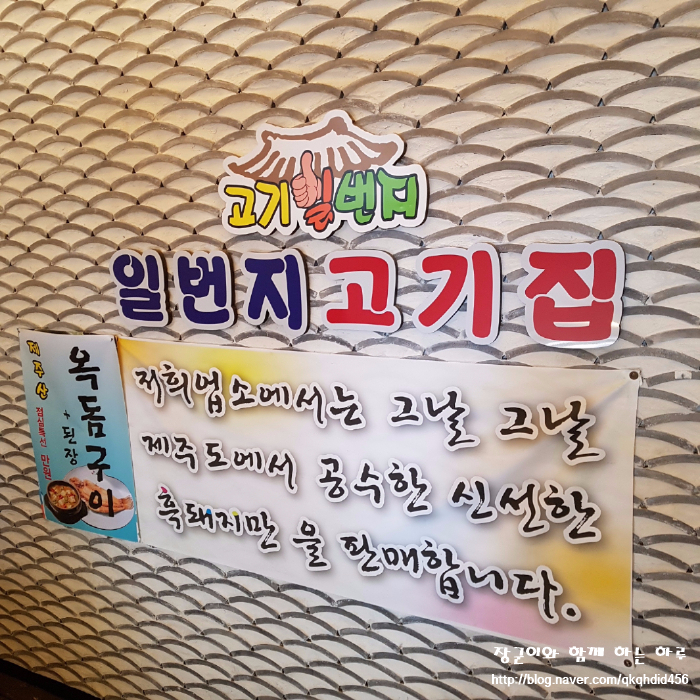 고기일번지
일번지고기집
제주산
옥돔구이
+된장
점심특선 만원
저희업소에서는 그날 그날
제주도에서 공수한 신선한
흑돼지만 을 판매합니다.
장군이와 함께 하는 하루
http://blog.naver.com/qkqhdid456